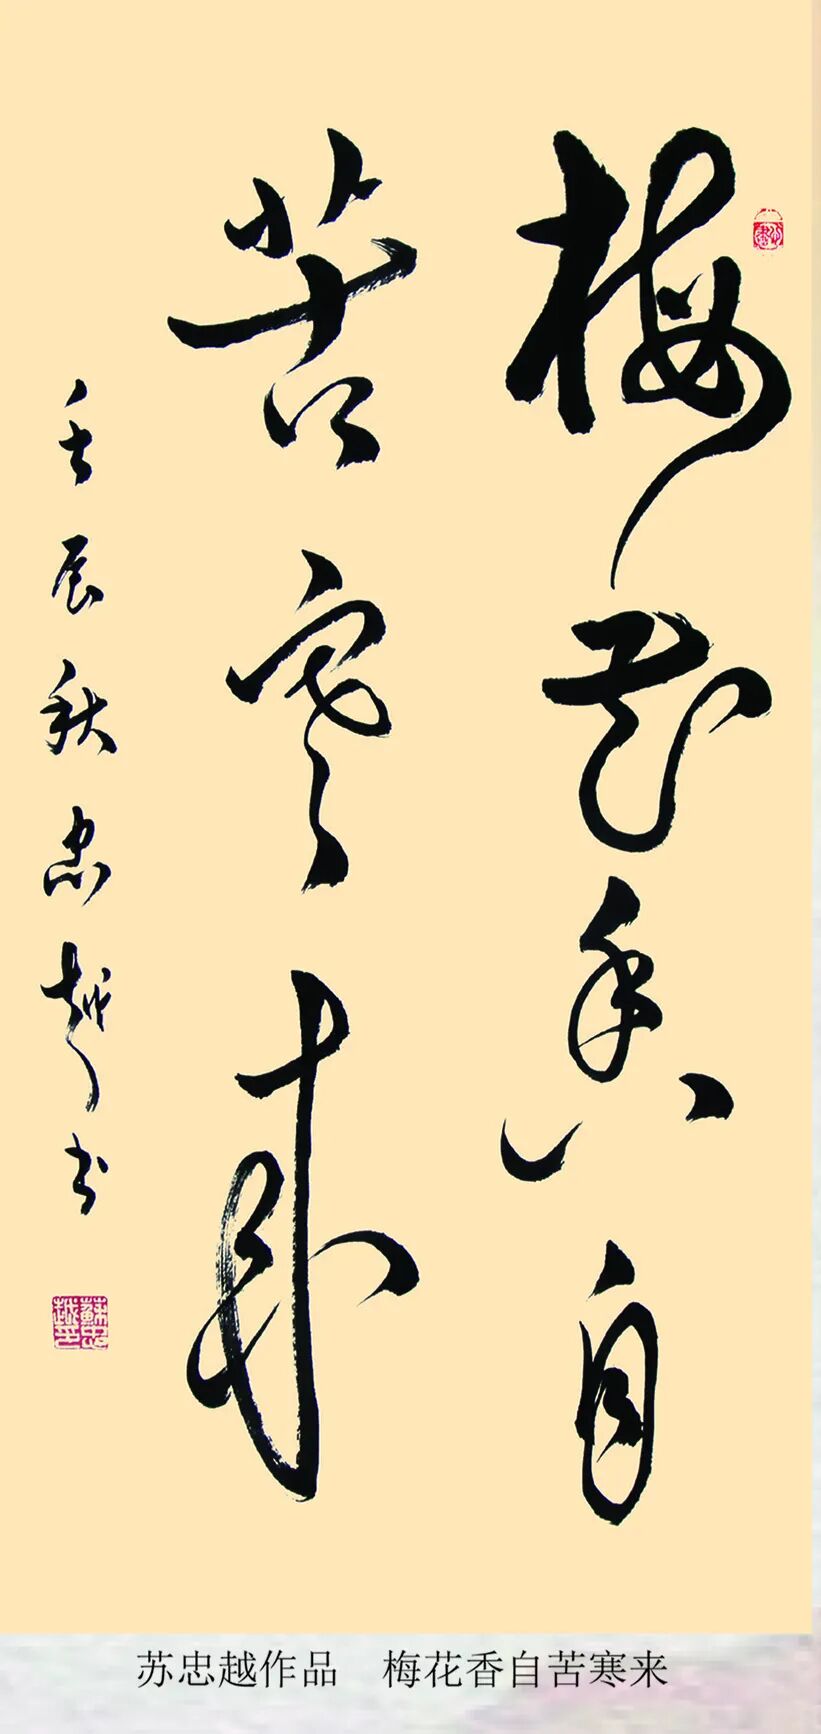 梅花香自
苦寒来
壬辰秋忠越书
蘇忠越印
苏忠越作品 梅花香自苦寒来